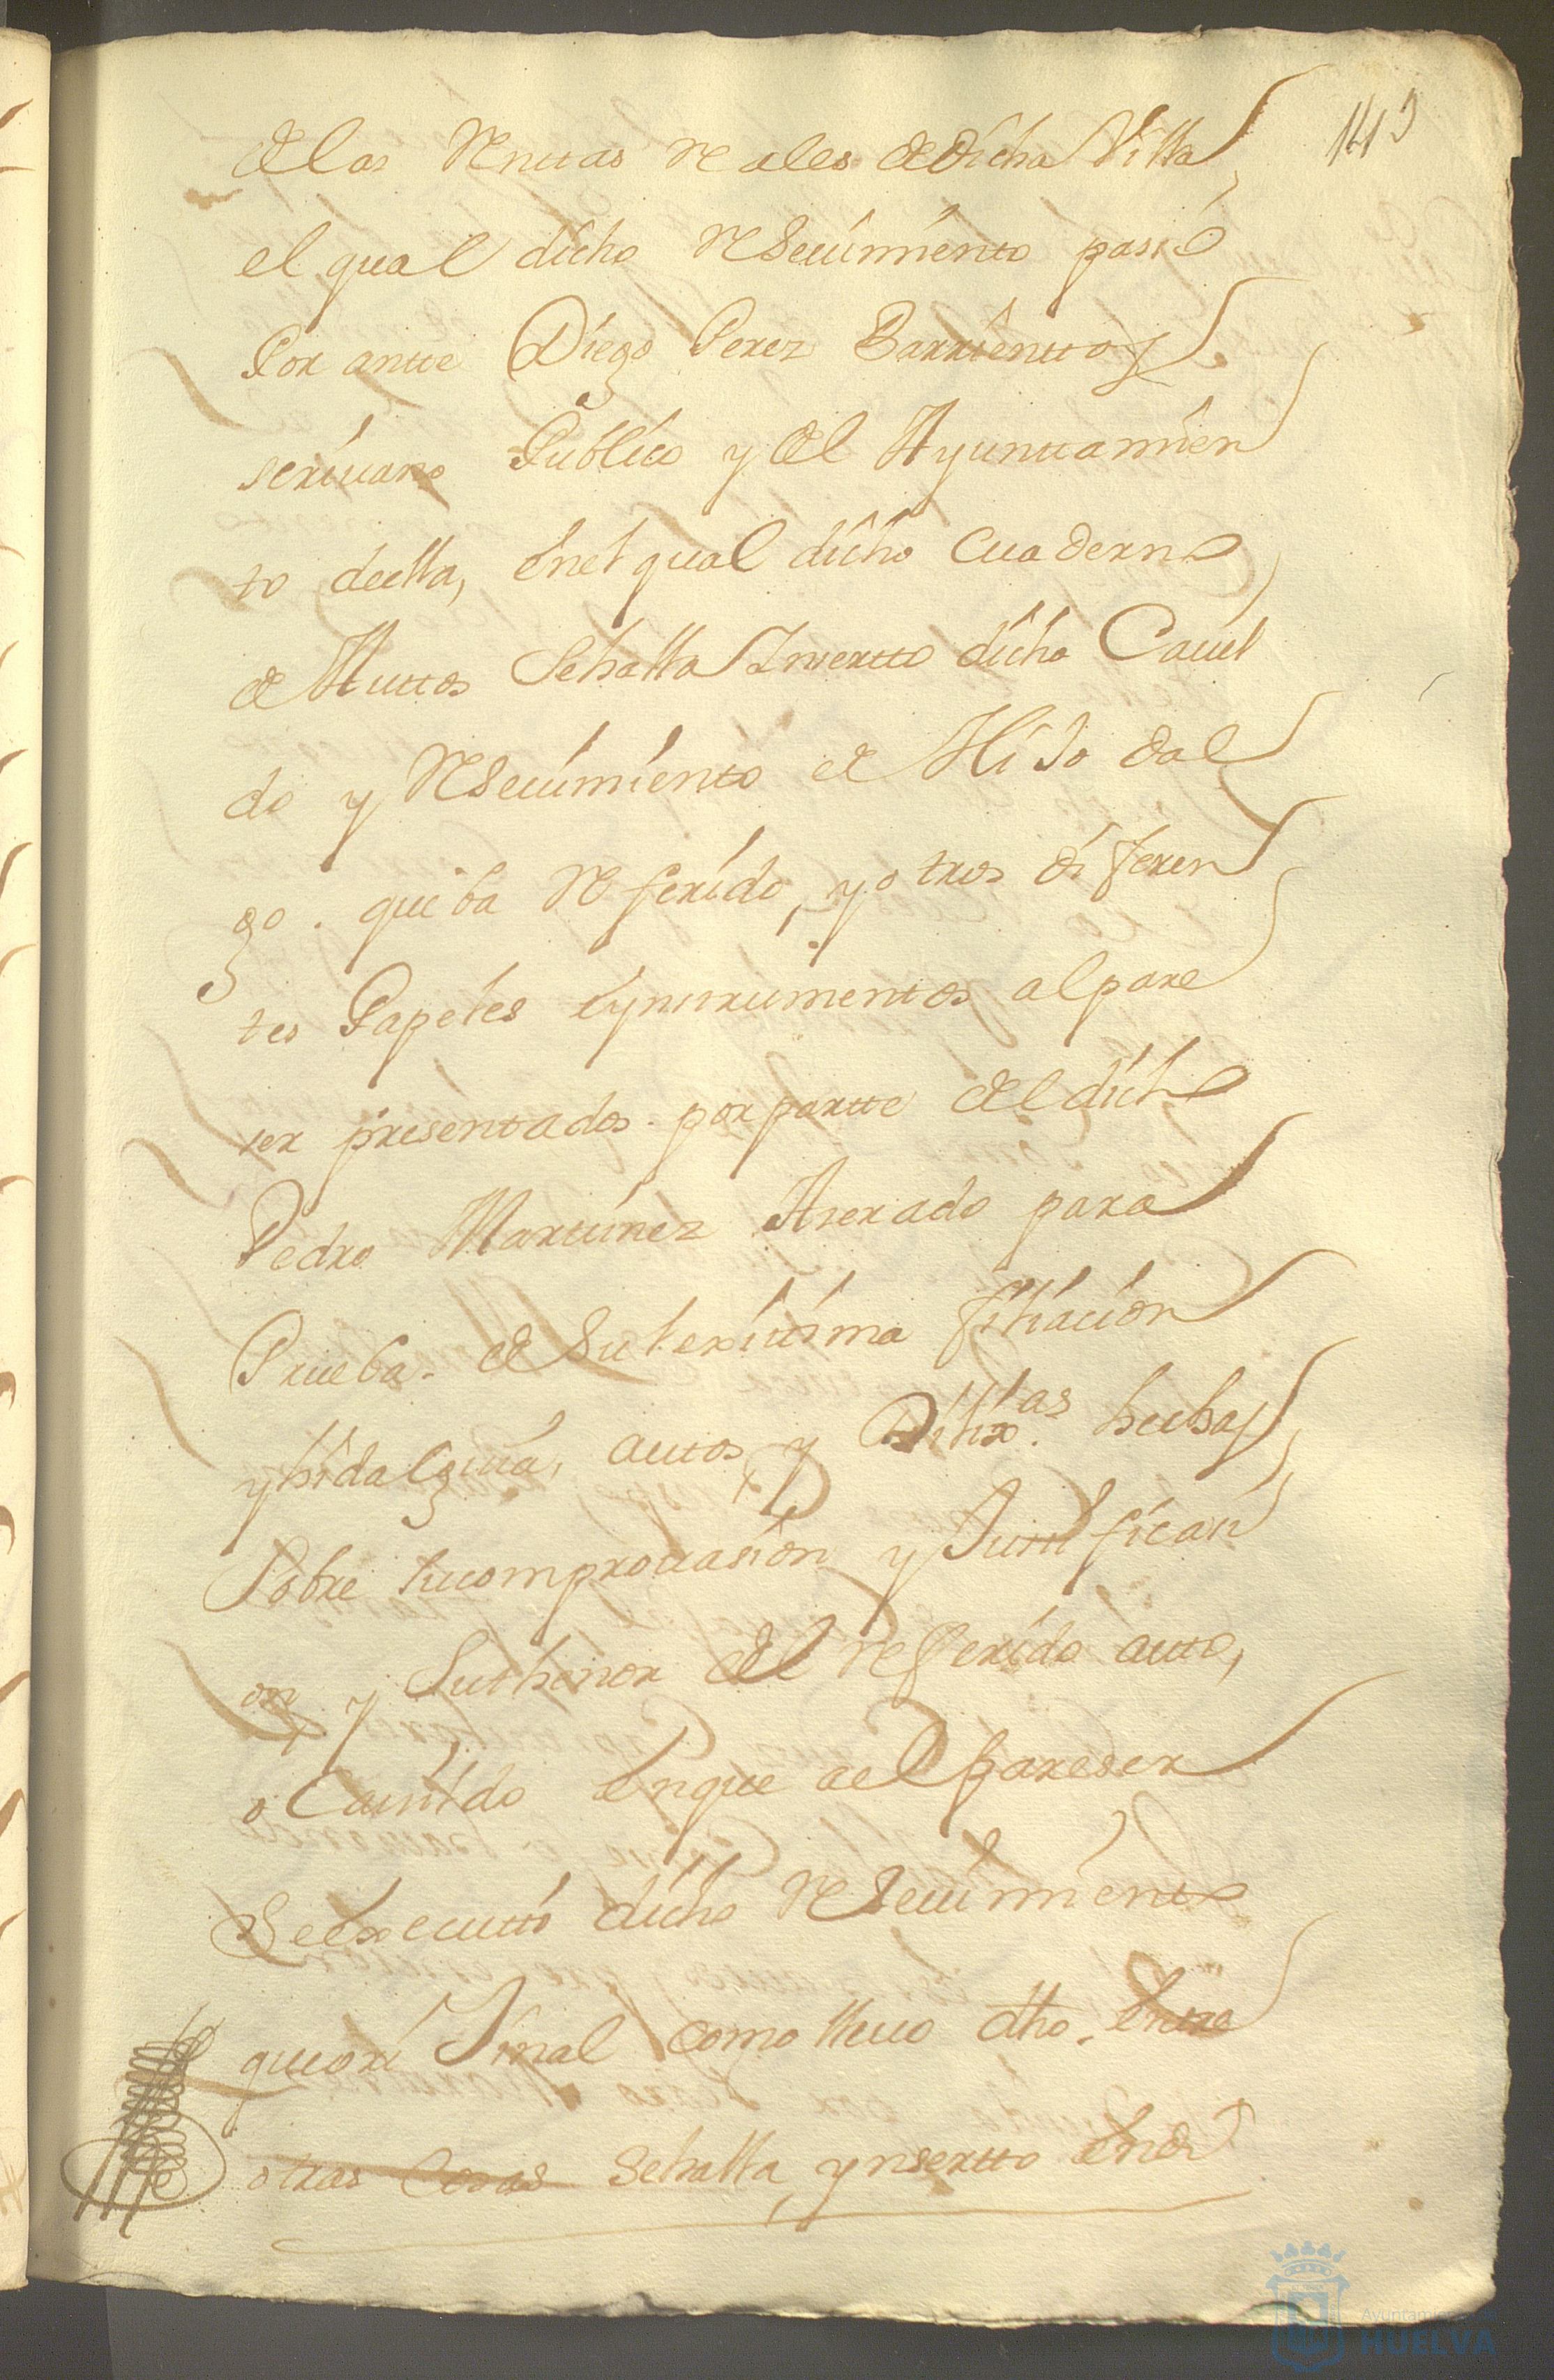 1419
de las Renttas Reales de dicha Villa
el qual dicho Resevimiento pasó
Por antte Diego Perez Barrienttos
scrivano Publico y del Ayunttamien
to de ella, en el qual dicho cuaderno
de Auttos Sehalla Ynsertto dicho Cavil
do y Resevimiento de Hijo dal
go. que ba Referido, y otros diferen
tes Papeles eynstrumentos al pare
ser presentados. por partte del dicho
Pedro Martinez Aserado para
Prueba. de Su lexitima filiacion
y hidalguia, autos y Dilixas. hechas
Sobre sucomprovasion y Justificasi
on, y Suthenor del Referido autto,
o Cavildo enque ael pareser
Seexecuttó dicho Resevimiento
queorixinal como llevo dho. entre
otras Cosas sehalla ynsertto endi
Ayuntamiento de
HUELVA